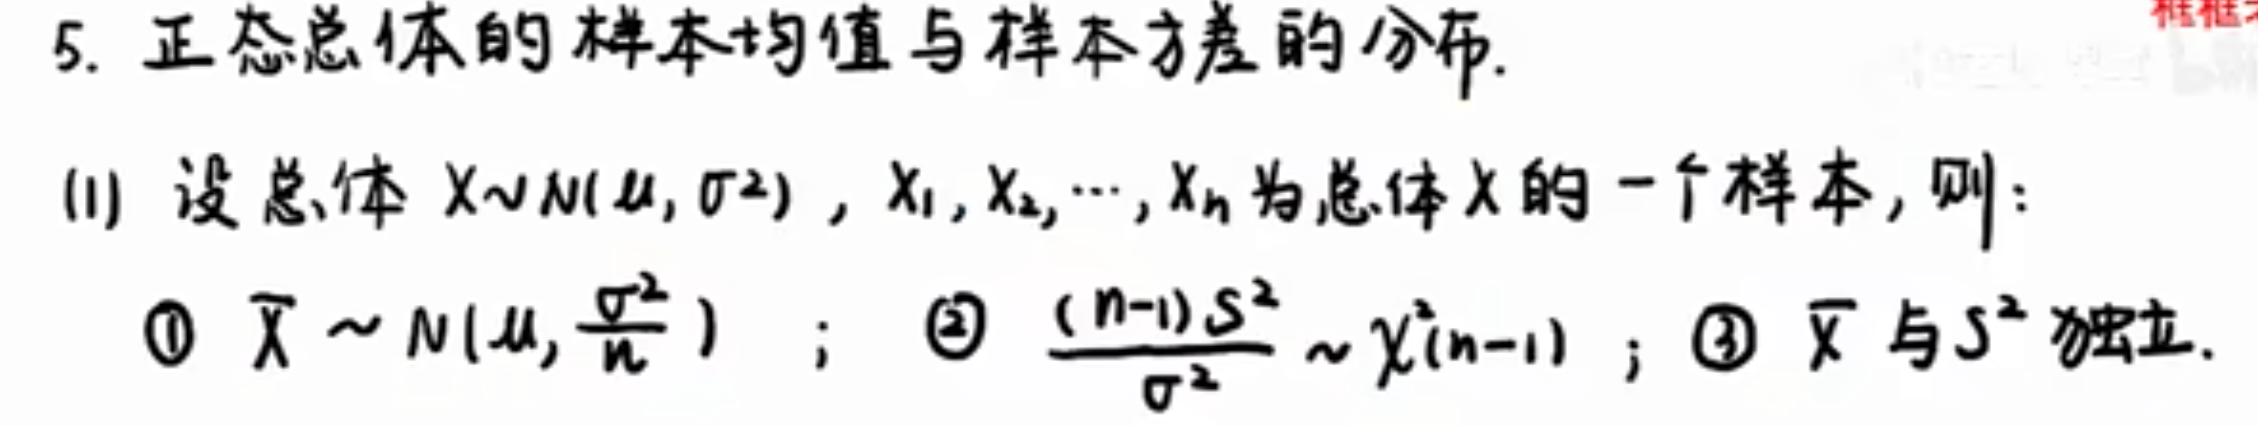 5. 正态总体的样本均值与样本方差的分布.
(1) 设总体 X~N(μ, σ²) , X₁, X₂, ⋯, Xₙ 为总体 X 的一个样本, 则:
① X̄ ~ N(μ, σ²/n) ; ② (n-1)S²/σ² ~ χ²(n-1) ; ③ X̄ 与 S² 独立.